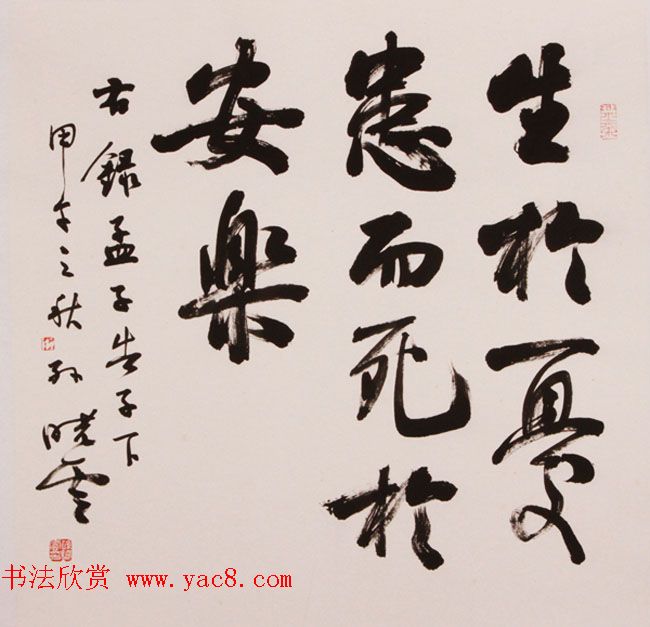 生於憂
患而死於
安樂
右錄孟子告子下
甲午之秋 孫曉雲
书法欣赏 www.yac8.com